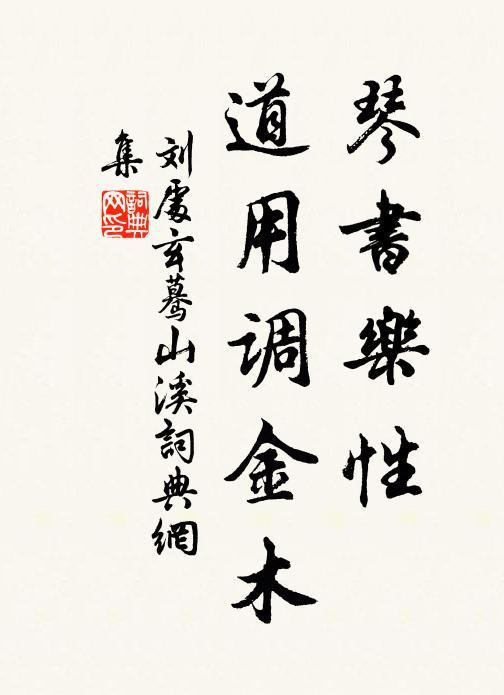 琴書樂性
道用调金木
刘處玄蓦山溪詞典網
集
詞典网印